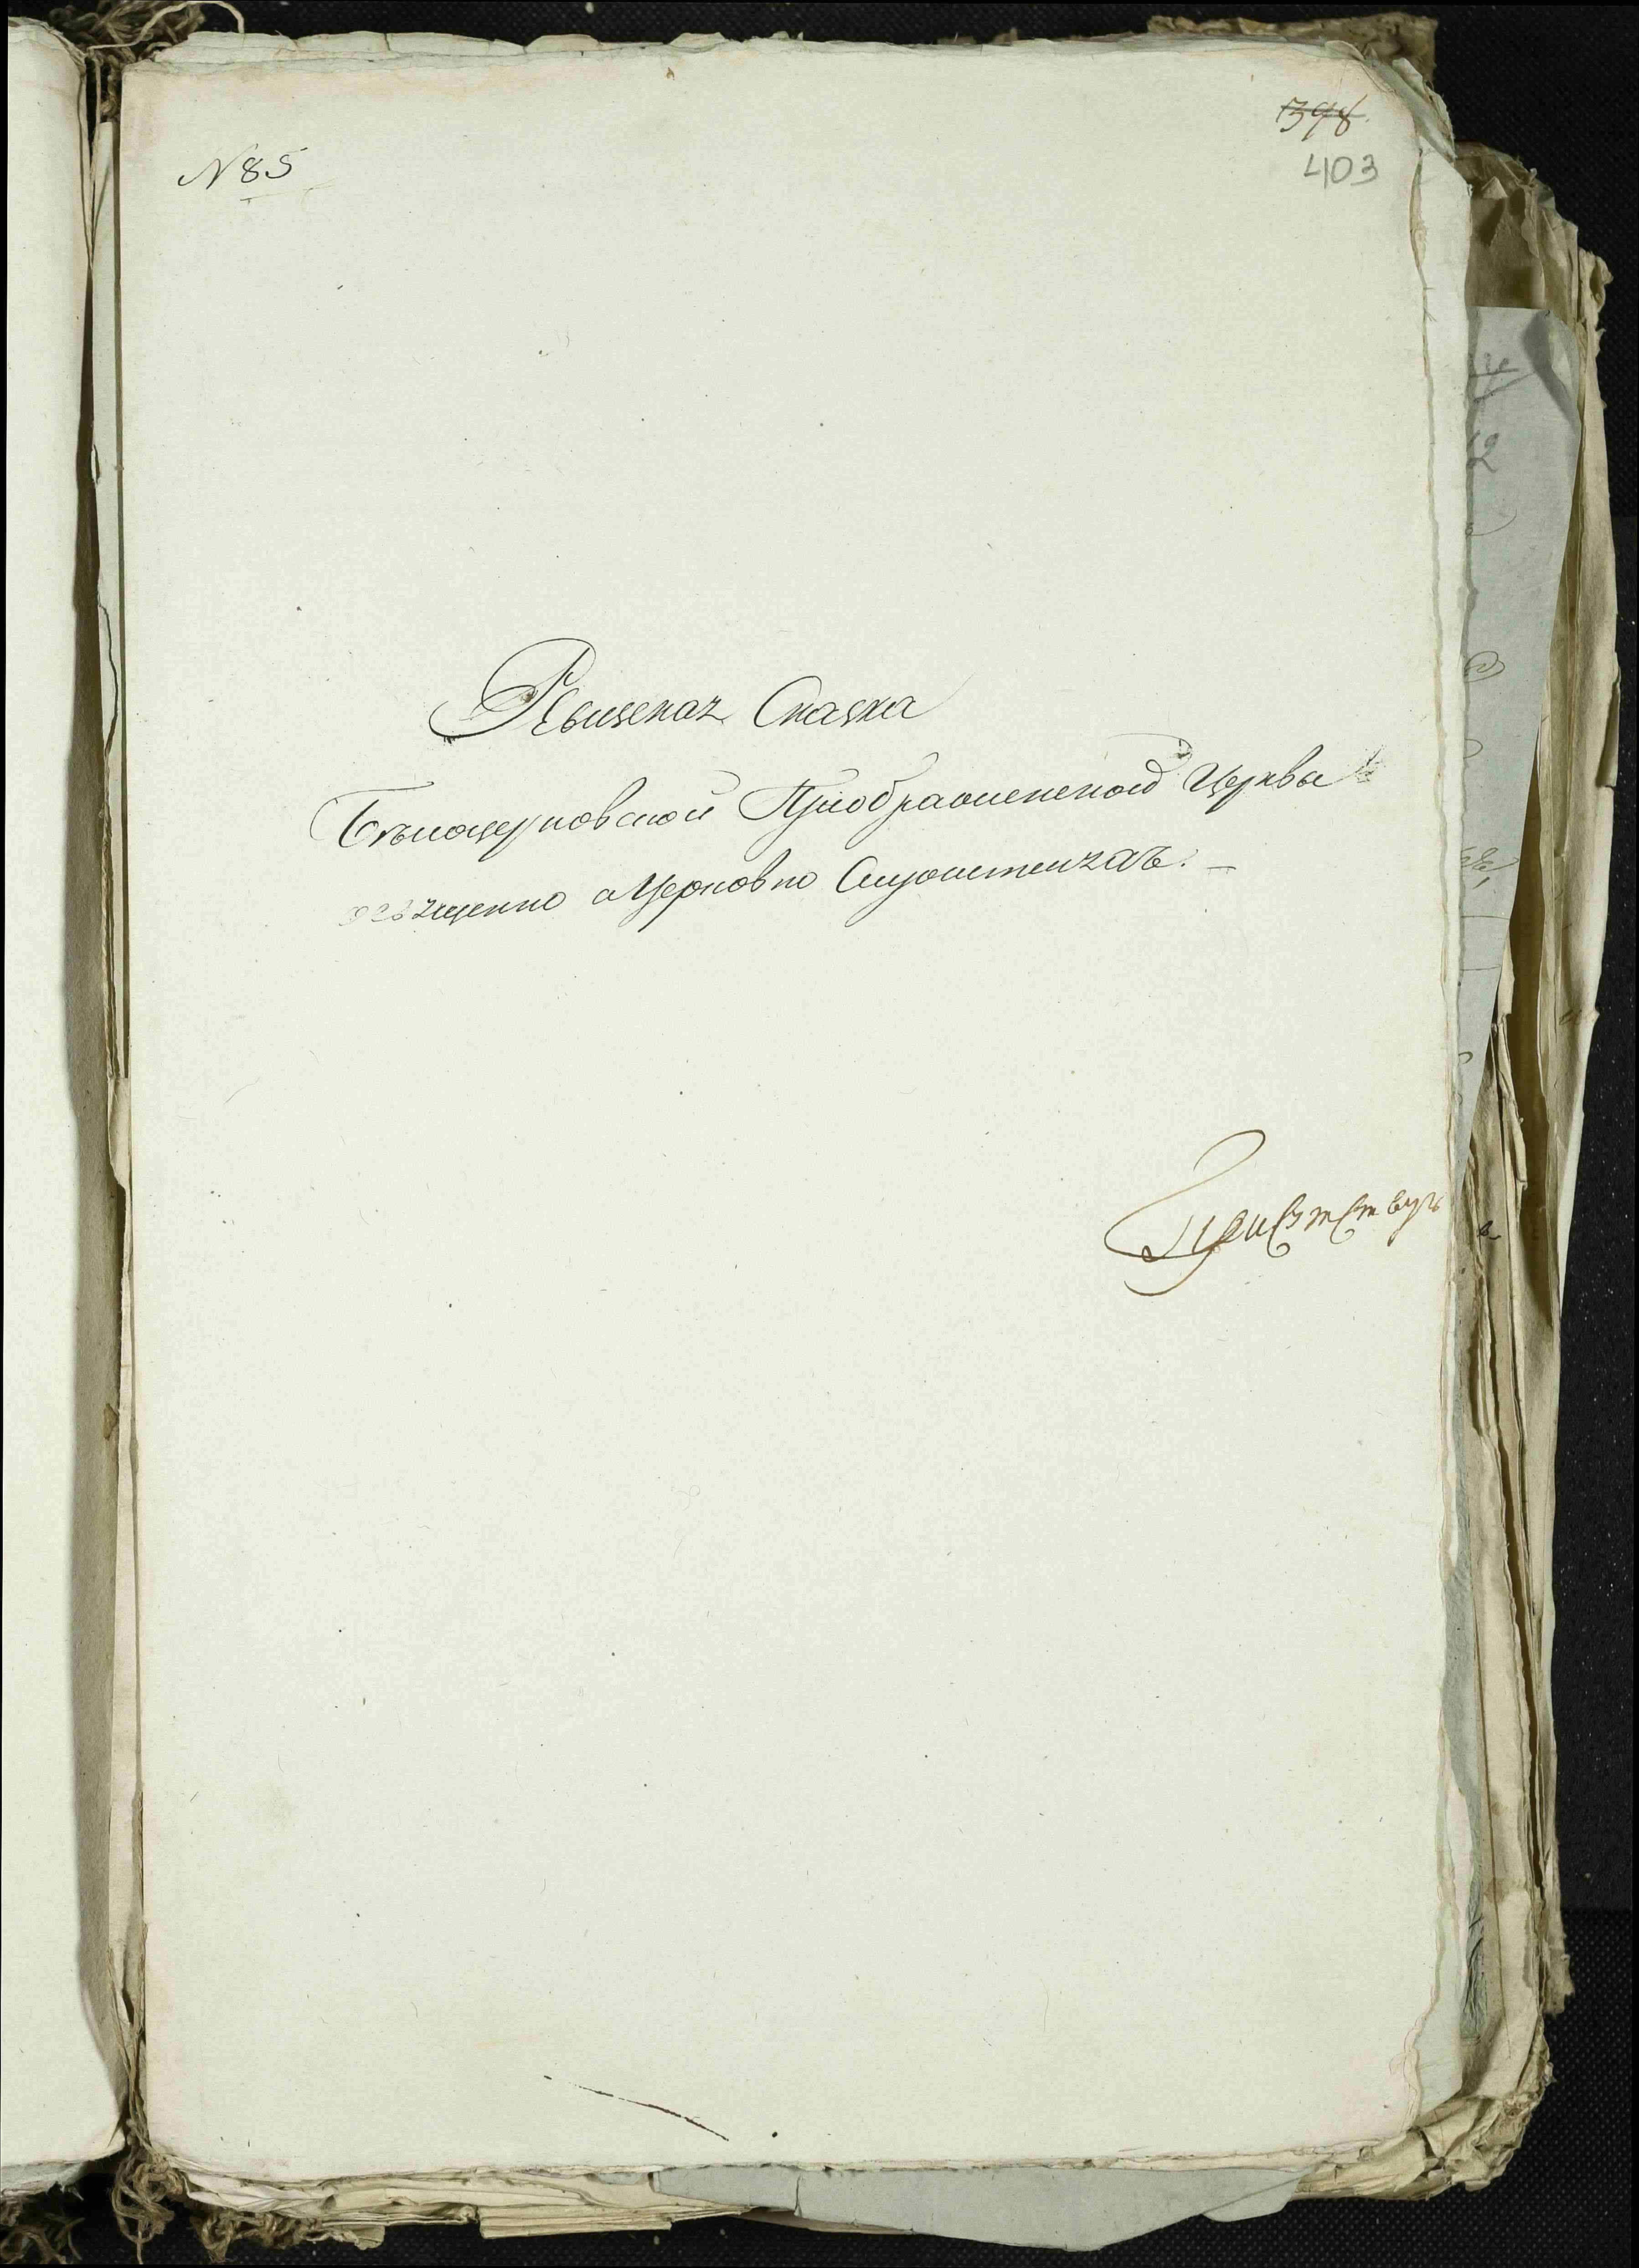 N 85
398.
403
Ревизская Сказка
Бѣлоцерковской Приображенской Церквы
освященно и Церковно Служителяхъ. –